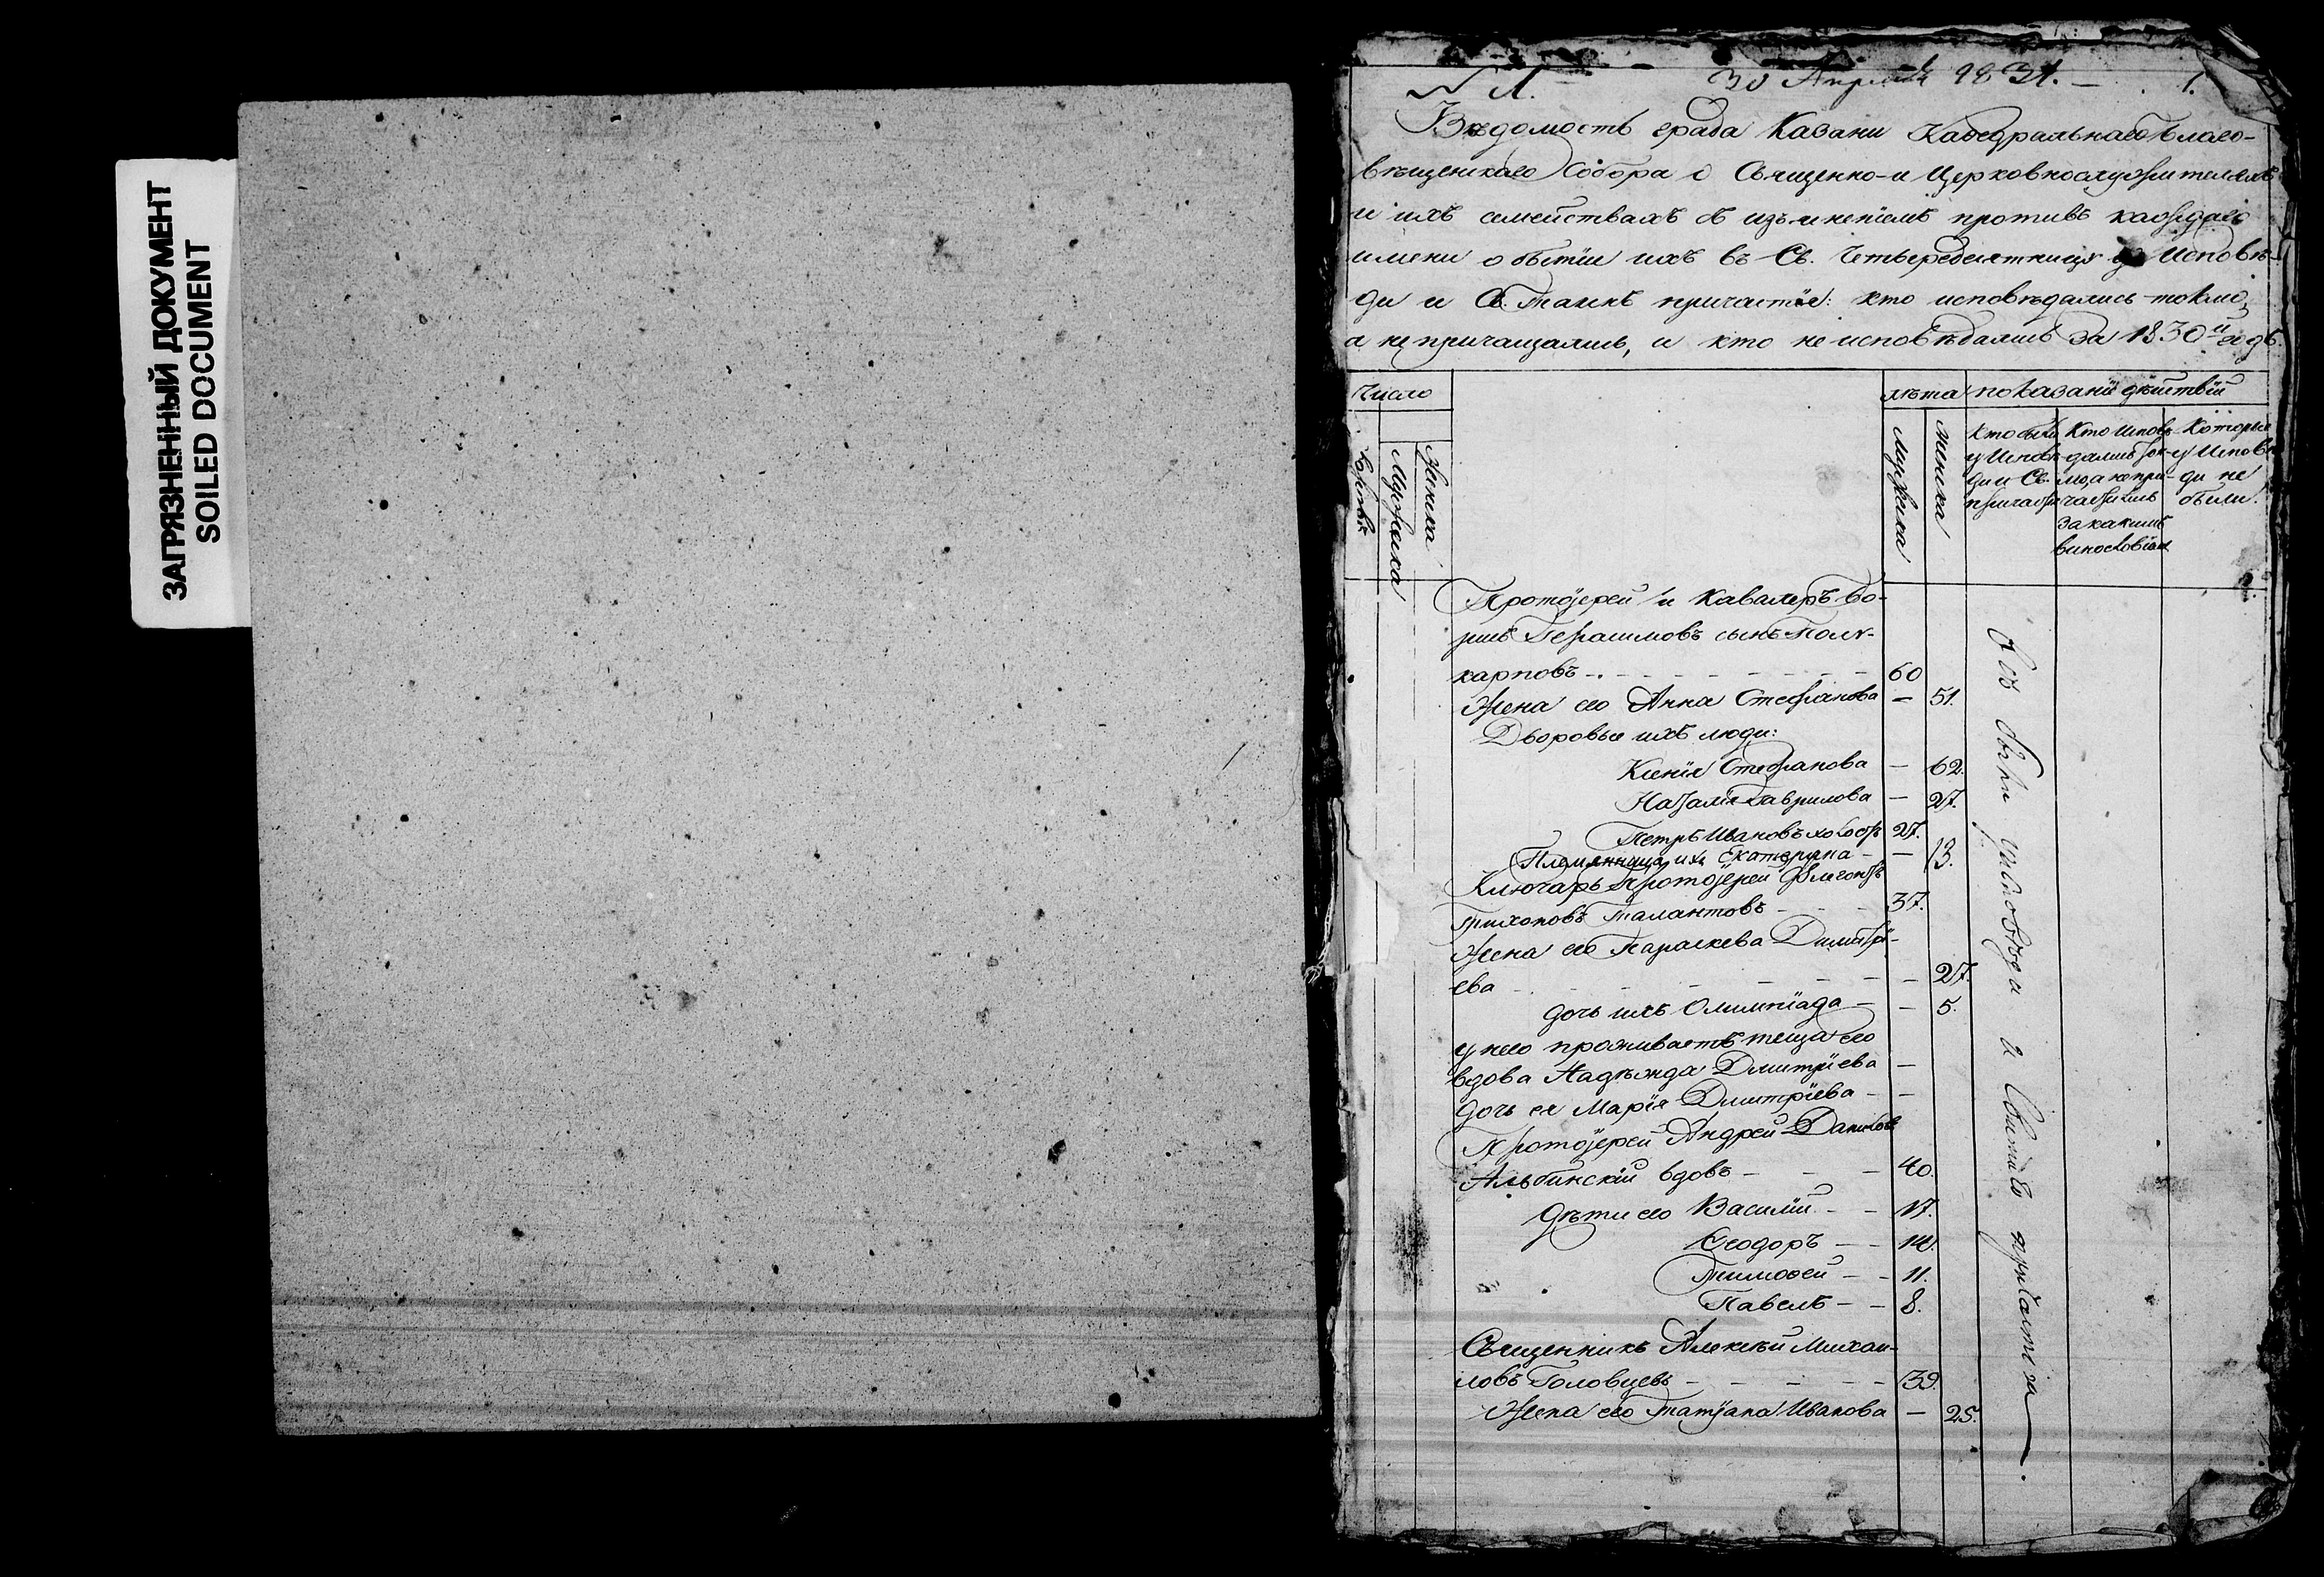 ЗАГРЯЗНЕННЫЙ ДОКУМЕНТ
SOILED DOCUMENT
30 Апреля 1831. — 1.
Вѣдомость града Казани Каѳедральнаго Благо-
вѣщенскаго Собора о Священно- и Церковнослужителяхъ
и ихъ семействахъ съ изъясненіемъ противъ каждаго
имени о бытіи ихъ въ Св. Четыредесятницу у Исповѣ-
ди и Св. Таинъ причастія: кто исповѣдались токмо,
а не причащались, и кто не исповѣдались за 1830й годъ.
Число
лѣта показаніе дѣйствій
Мужеска
Женска
Мужеска
Женска
Кто были у Исповѣ-ди и Св. причастія
Кто исповѣ-дались токмо, а не при-частились за какимъ винословіемъ
Которые у Исповѣ-ди не были.
Протоіерей и Кавалеръ Бо-
рисъ Герасимовъ сынъ Поли-
карповъ - - - 60
Жена его Анна Стефанова — 51.
Дворовые ихъ люди:
Ксенія Стефанова — 62.
Наталія Гаврилова — 27.
Петръ Ивановъ холостъ 27.
Племянница ихъ Екатерина — — 13.
Ключарь Протоіерей Флегонтъ
Тихоновъ Талантовъ - - - 37.
Жена его Параскева Димитрі-
ева - - - 27.
дочь ихъ Олимпіада — — 5.
у него проживаетъ теща его
вдова Надежда Дмитріева —
Дочь ея Марія Дмитріева - —
Протоіерей Андрей Даниловъ
Альбинскій вдовъ — — — 40.
Дѣти его Василій - - 17.
Ѳеодоръ — - 14.
Тимоѳей — - 11.
Павелъ - - 8.
Священникъ Алексѣй Михаи-
ловъ Головцевъ - - - 39.
Жена его Татіана Иванова — 25.
Всѣ были у исповѣди и Святаго причастія.